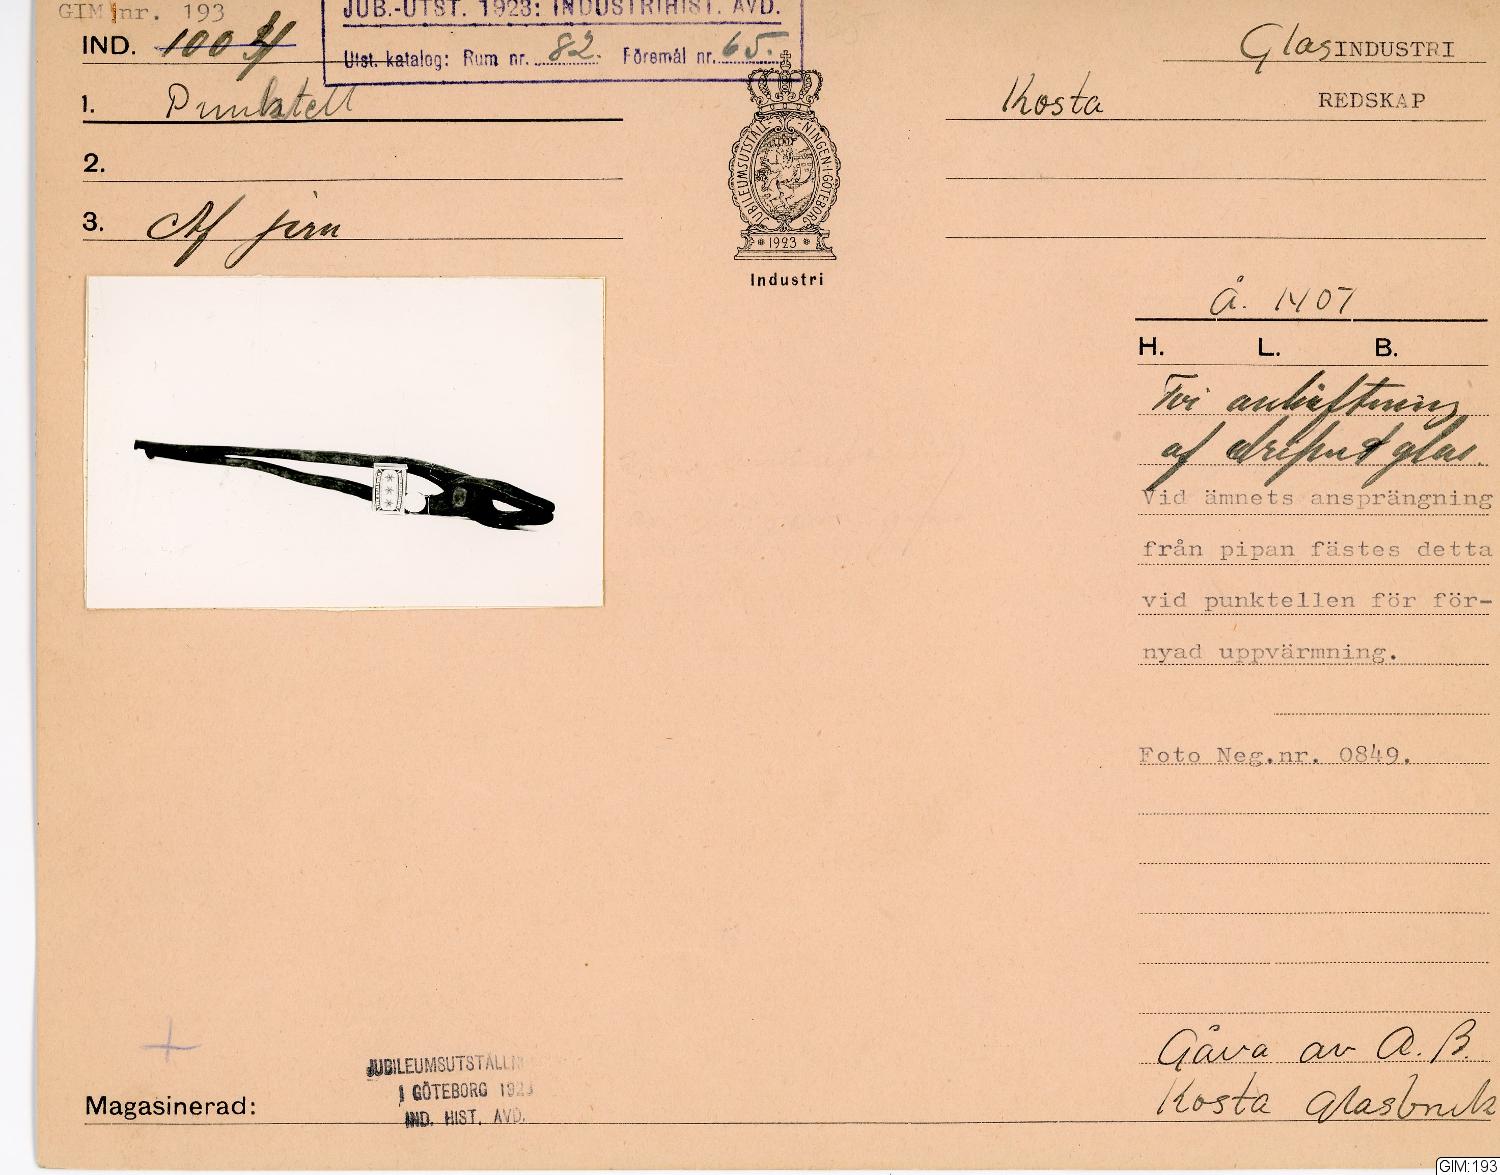 GIM nr. 193
IND. 100 
JUB.-UTST. 1923: INDUSTRIHIST. AVD.
Utst. katalog: Rum nr. 82. Föremål nr. 65.
1. Punktell
2.
3. Af järn
JUBILEUMSUTSTÄLL-NINGEN·I·GÖTEBORG
* 1923 *
Industri
GlasINDUSTRI
Kosta REDSKAP
Å. 1407
H. L. B.
För anhäftning
af glas.
Vid ämnets ansprängning
från pipan fästes detta
vid punktellen för för-
nyad uppvärmning.
Foto Neg.nr. 0849.
Gåva av A.B.
Kosta Glasbruk
JUBILEUMSUTSTÄLLN
I GÖTEBORG 1923
IND. HIST. AVD.
Magasinerad:
GIM:193